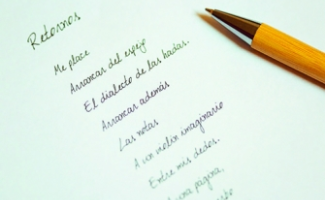 Retornos
Me place
Arrancar del espejo
El dialecto de las hadas.
Arrancar además
Las notas
A un violín imaginario
Entre mis dedos.
una página,